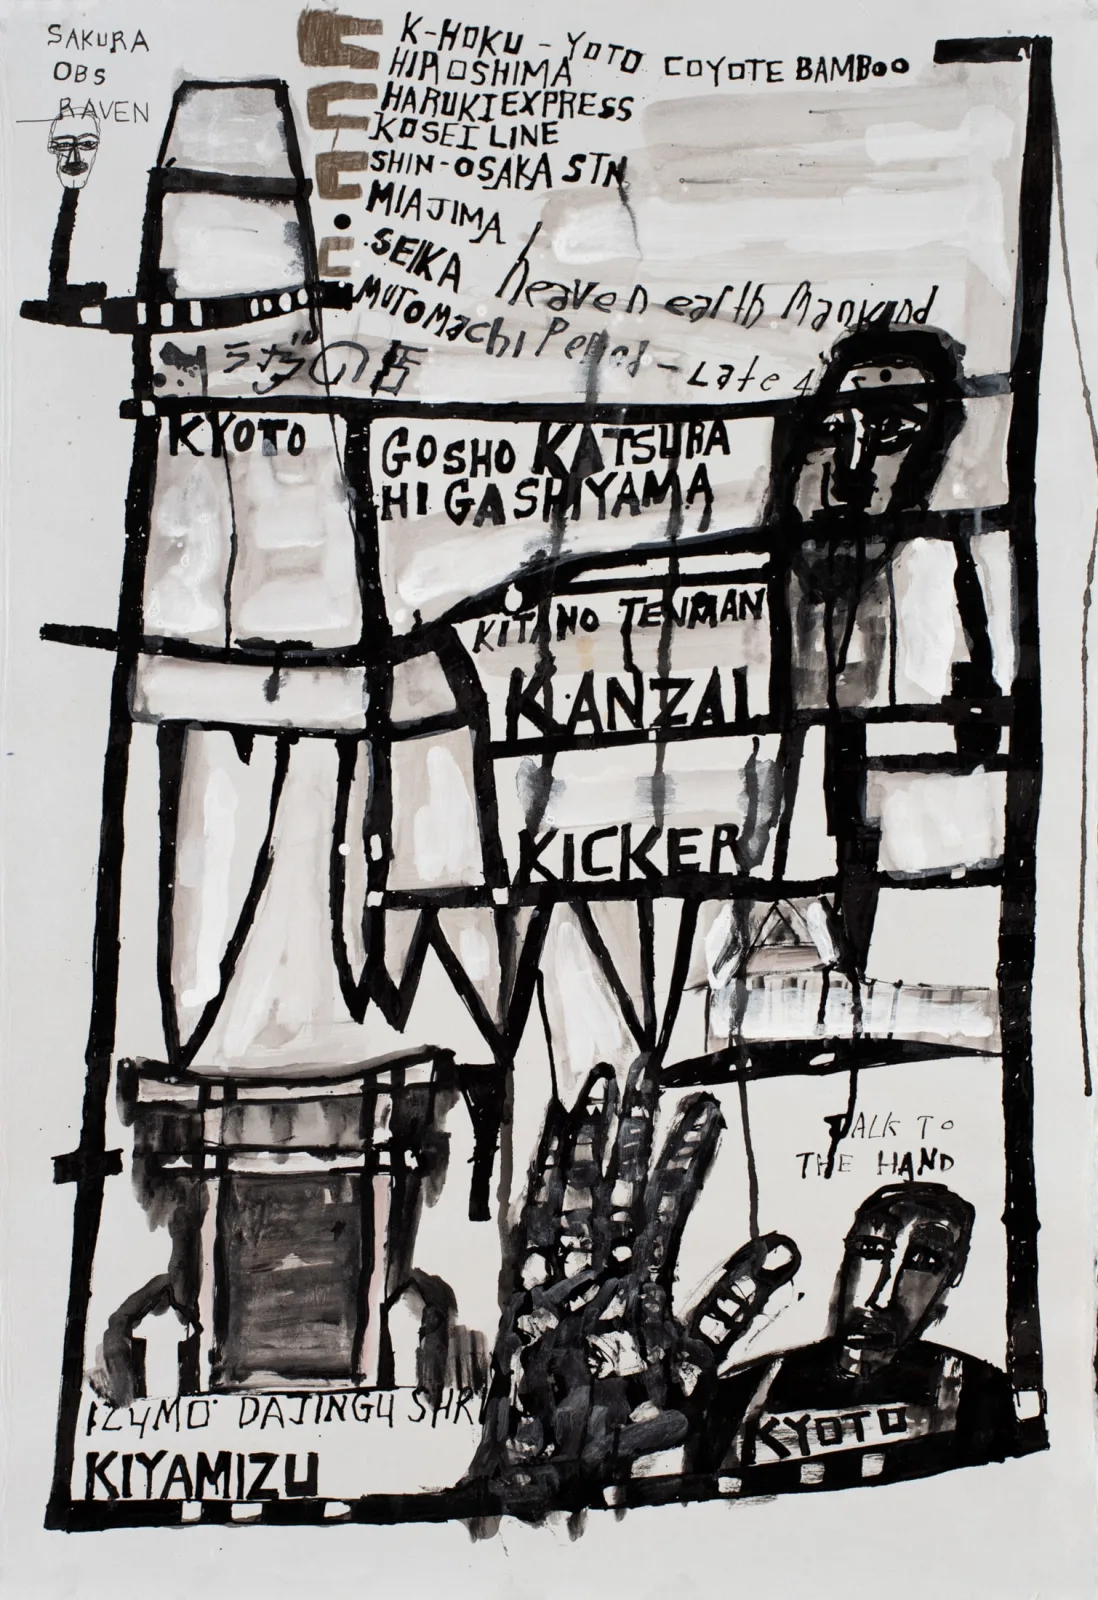 SAKURA
OBS
RAVEN
K-HOKU - YOTO COYOTE BAMBOO
HIROSHIMA
HARUKI EXPRESS
KOSEI LINE
SHIN-OSAKA STN
MIAJIMA
SEIKA
heaven earth Mankind
MUTOMachi Period - Late 4
KYOTO
GOSHO KATSURA
HIGASHIYAMA
KITANO TENMAN
KANZAI
KICKER
TALK TO
THE HAND
IZUMO DAJINGU SHRI
KIYAMIZU
KYOTO